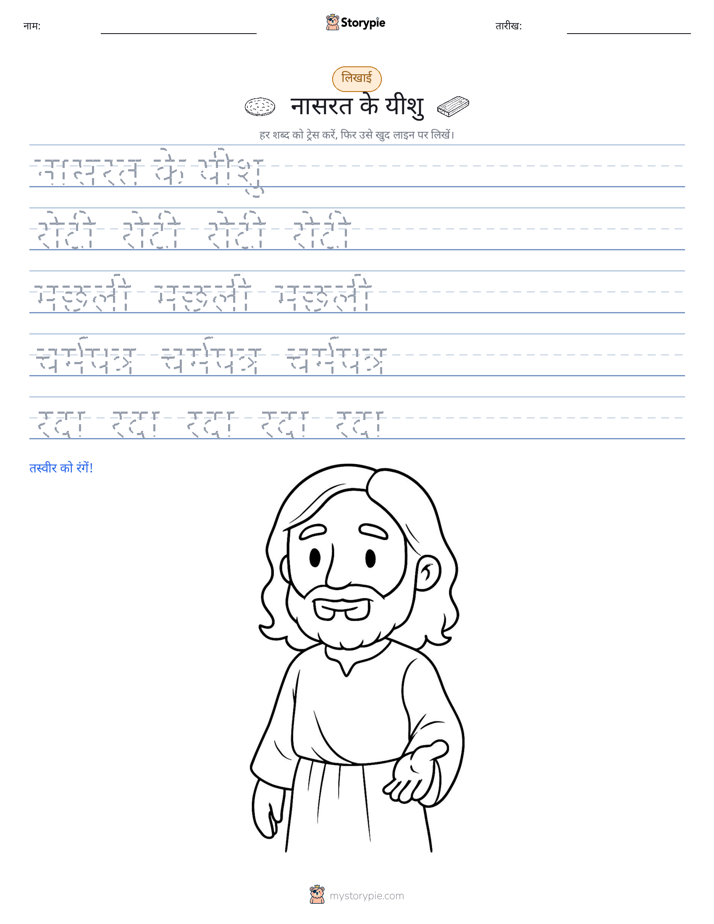 नाम: तारीख:
Storypie
लिखाई
नासरत के यीशु
हर शब्द को ट्रेस करें, फिर उसे खुद लाइन पर लिखें।
नासरत के यीशु
रोटी रोटी रोटी रोटी
मछली मछली मछली
चर्मपत्र चर्मपत्र चर्मपत्र
रंदा रंदा रंदा रंदा रंदा
तस्वीर को रंगें!
mystorypie.com